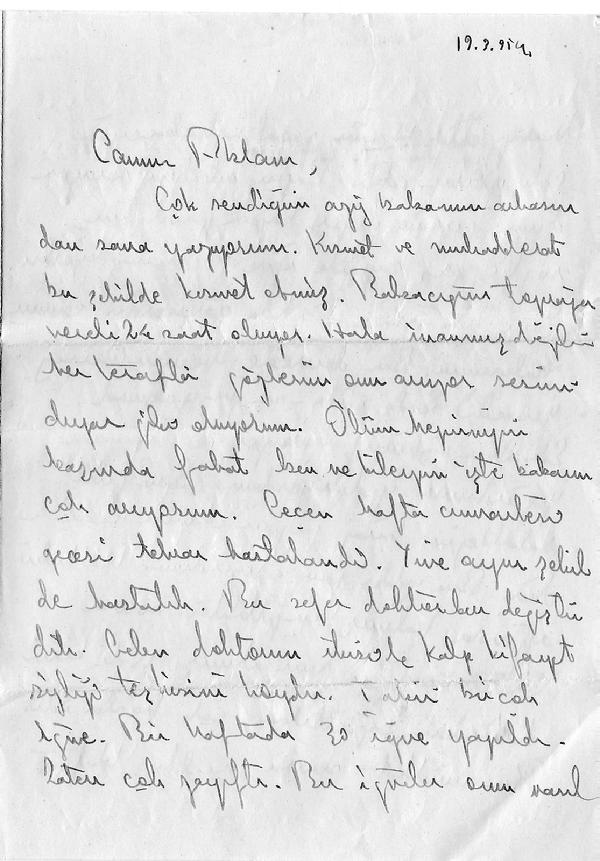 19.9.954
Canım Ablam,
Çok sevdiğim aziz babamın arkasın
dan sana yazıyorum. Kısmet ve mukadderat
bu şekilde kısmet etmiş. Babacığım toprağa
vereli 24 saat oluyor. Hala inanmış değilim
her tarafta gözlerim onu arıyor sesini
duyar gibi oluyorum. Ölüm hepimizin
başında fakat ben ne bileyim işte babamı
çok arıyorum. Geçen hafta cumartesi
gecesi tekrar hastalandı. Yine aynı şekil
de hastalık. Bu sefer doktorları değiştir
dik. Gelen doktorun ikisi de kalp kifayet
sizliği teşhisini koydu. Tabii birçok
iğne. Bir haftada 30 iğne yapıldı.
Zaten çok zayıftı. Bu iğneler onu nasıl